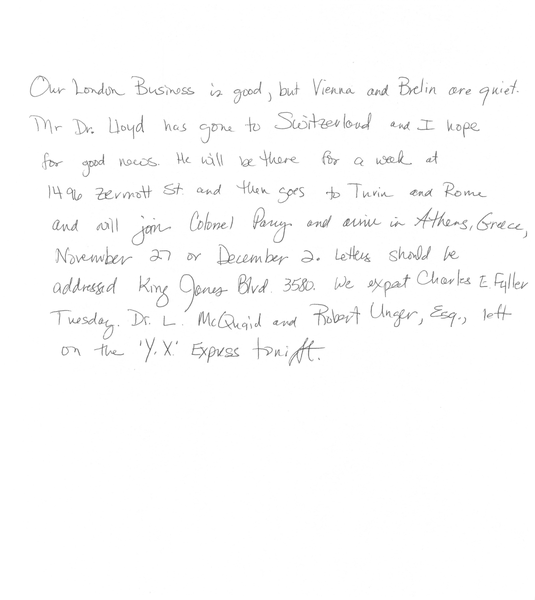 Our London Business is good, but Vienna and Brelin are quiet.
Mr Dr. Lloyd has gone to Switzerland and I hope
for good news. He will be there for a week at
1496 Zermott St. and then goes to Turin and Rome
and will join Colonel Parry and arrive in Athens, Greece,
November 27 or December 2. Letters should be
addressed King James Blvd. 3580. We expect Charles E. Fuller
Tuesday. Dr. L. McQuaid and Robert Unger, Esq., left
on the 'Y.X.' Express tonight.